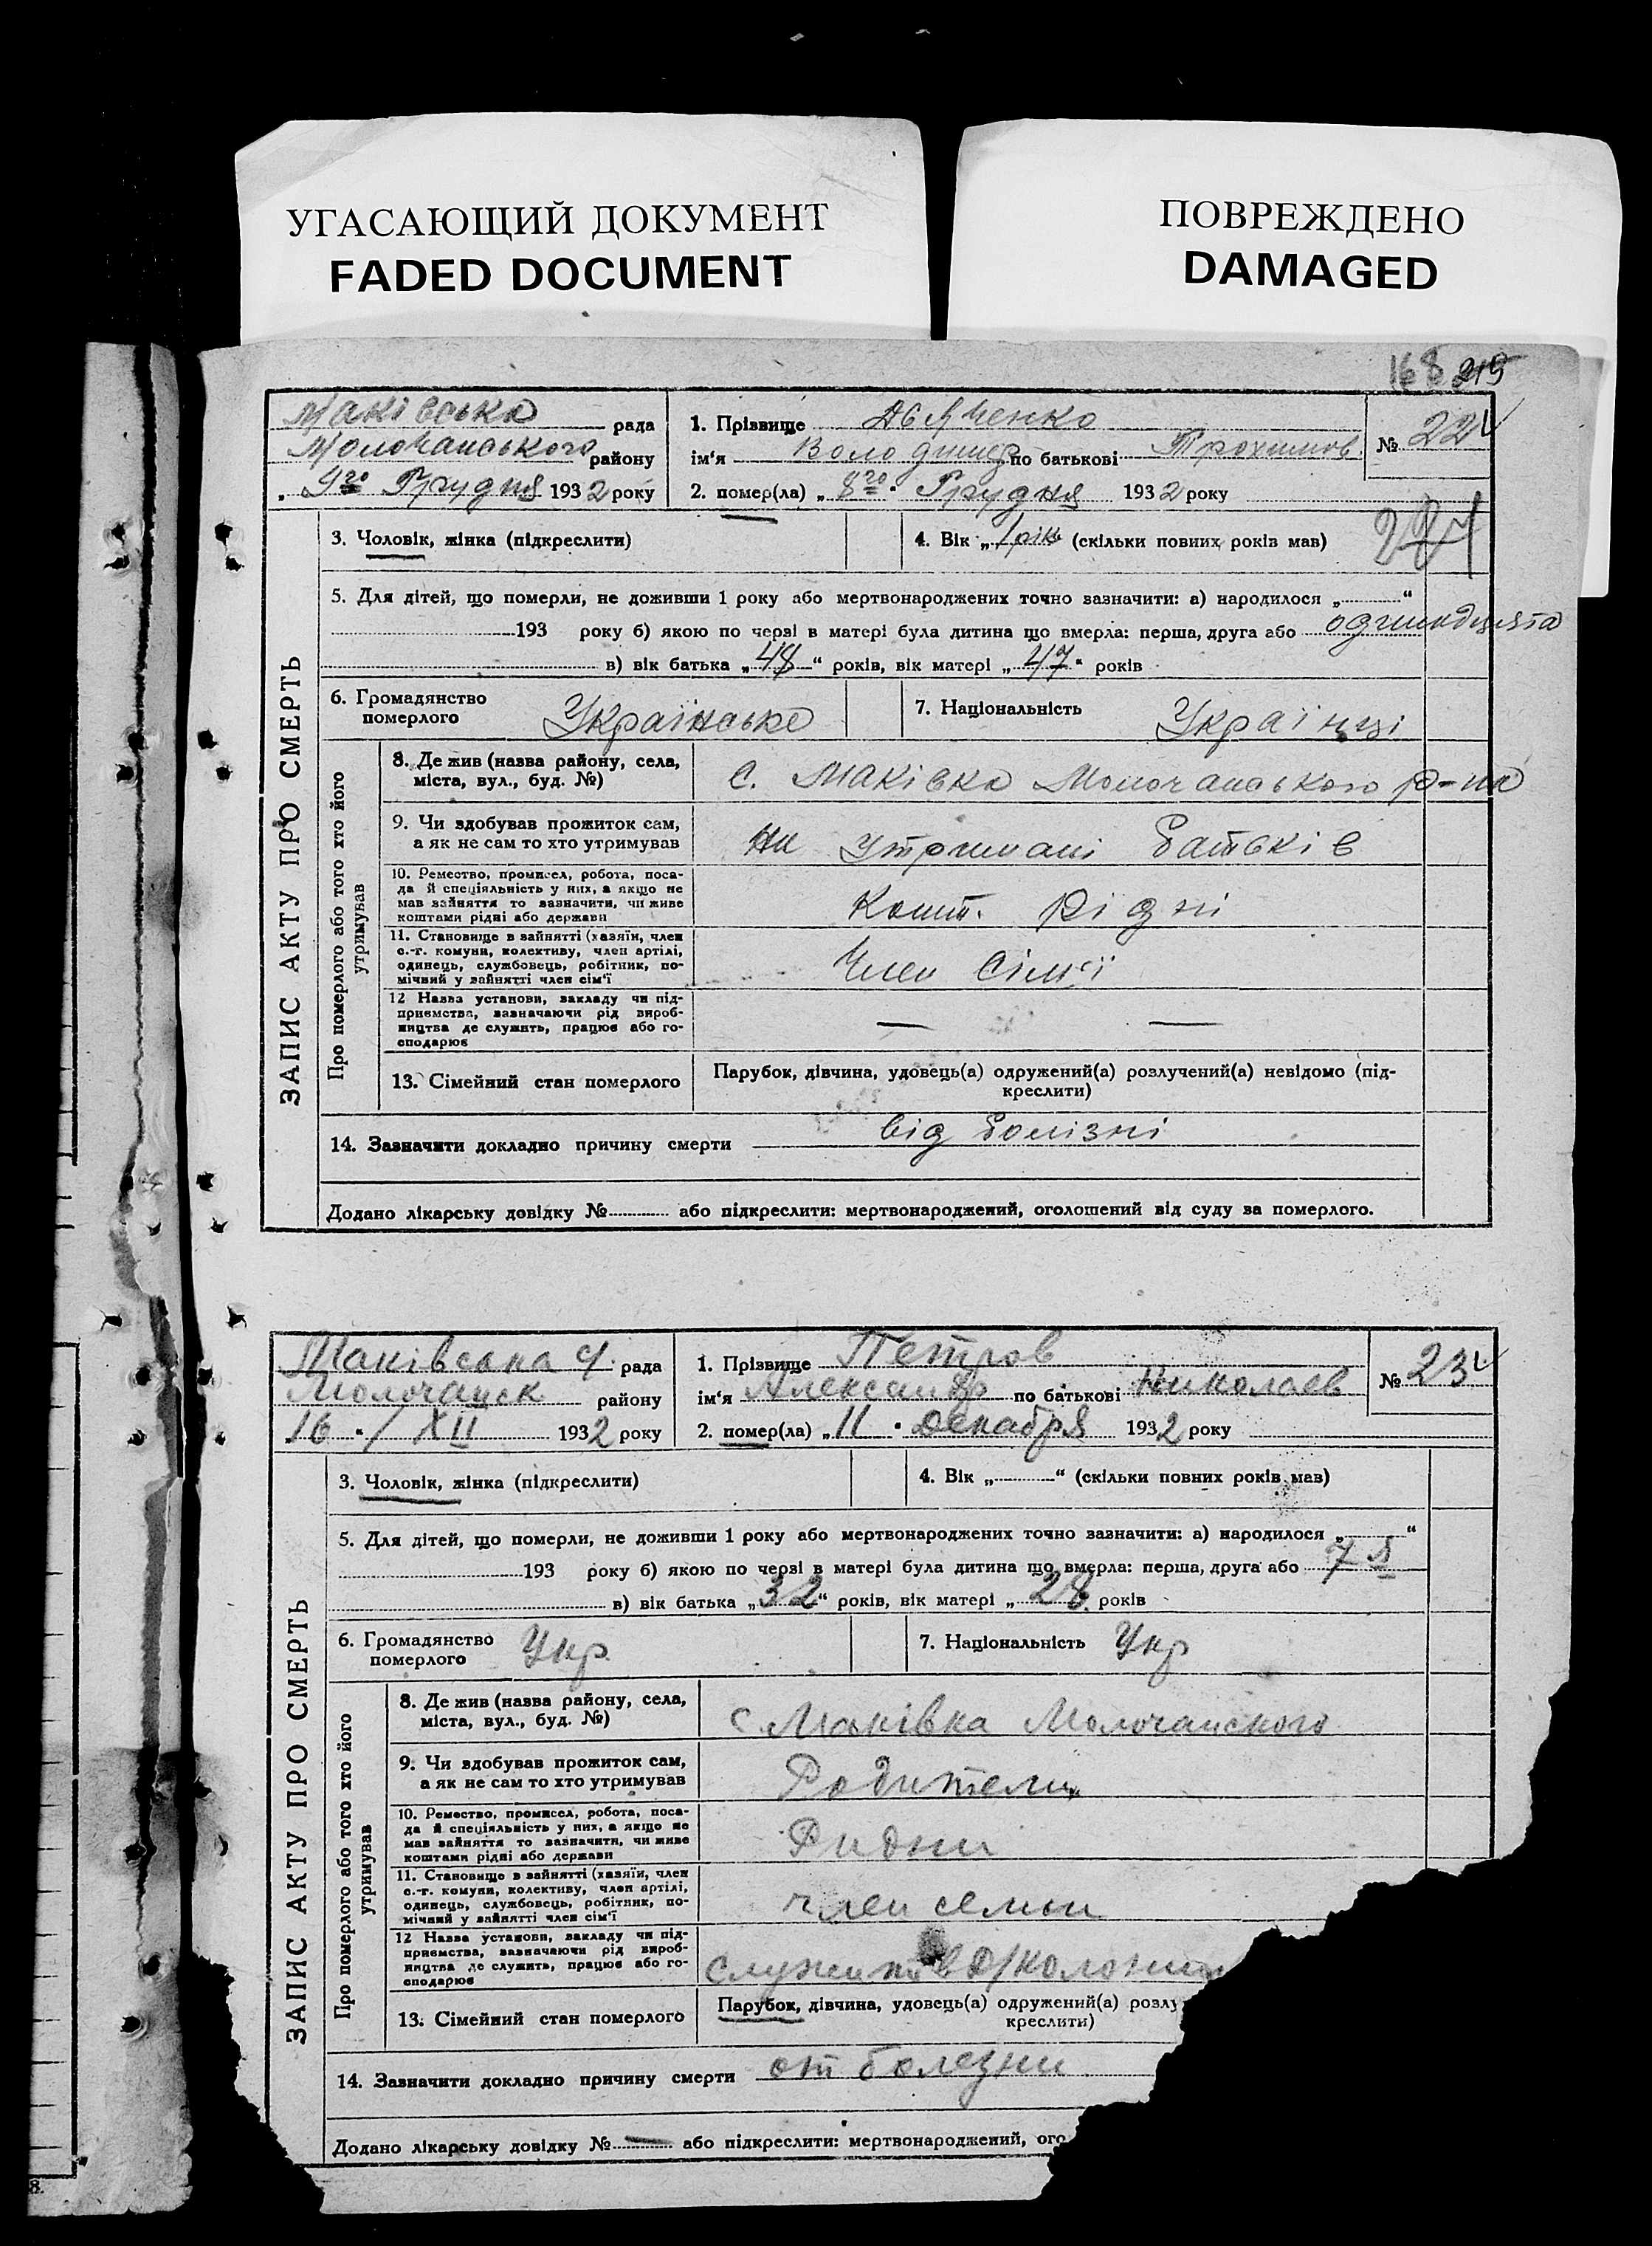 УГАСАЮЩИЙ ДОКУМЕНТ
FADED DOCUMENT
ПОВРЕЖДЕНО
DAMAGED
168 219
Маківська рада
Молочанського району
„ 9го Грудня 1932 року
1. Прізвище Дьяченко
ім'я Володимир по батькові Трохимов.
2. помер(ла) „ 8го " Грудня 1932 року
№ 22
3. Чоловік, жінка (підкреслити)
4. Вік „ 1 рік (скільки повних років мав)
5. Для дітей, що померли, не доживши 1 року або мертвонароджених точно зазначити: а) народилося „ “
193 року б) якою по черзі в матері була дитина що вмерла: перша, друга або одинадцята
в) вік батька „ 48 “ років, вік матері „ 47 " років
6. Громадянство
померлого Українське
7. Національність Українці
ЗАПИС АКТУ ПРО СМЕРТЬ
Про померлого або того хто його
утримував
8. Де жив (назва району, села,
міста, вул., буд. №)
с. Маківка Молочанського р-на
9. Чи здобував прожиток сам,
а як не сам то хто утримував
На утримані батьків
10. Ремество, промисел, робота, поса-
да й спеціяльність у них, а якщо не
мав зайняття то зазначити, чи живе
коштами рідні або держави
Кошт. Рідні
11. Становище в зайнятті (хазяїн, член
с.-г. комуни, колективу, член артілі,
одинець, службовець, робітник, по-
мічний у зайнятті член сім'ї
Член сім'ї
12 Назва установи, закладу чи під-
приємства, зазначаючи рід вироб-
ництва де служить, працює або го-
сподарює
— —
13. Сімейний стан померлого
Парубок, дівчина, удовець(а) одружений(а) розлучений(а) невідомо (під-
креслити)
14. Зазначити докладно причину смерти від болізні
Додано лікарську довідку № або підкреслити: мертвонароджений, оголошений від суду за померлого.
Маківська рада
Молочанск району
16 " / XII 1932 року
1. Прізвище Петров
ім'я Александр по батькові Николаев
2. помер(ла) „ 11 " декабря 1932 року
№ 23
3. Чоловік, жінка (підкреслити)
4. Вік „ “ (скільки повних років мав)
5. Для дітей, що померли, не доживши 1 року або мертвонароджених точно зазначити: а) народилося „ “
193 року б) якою по черзі в матері була дитина що вмерла: перша, друга або 7 я
в) вік батька „ 32 “ років, вік матері „ 28 років
6. Громадянство
померлого Укр.
7. Національність Укр
ЗАПИС АКТУ ПРО СМЕРТЬ
Про померлого або того хто його
утримував
8. Де жив (назва району, села,
міста, вул., буд. №)
с. Маківка Молочанского
9. Чи здобував прожиток сам,
а як не сам то хто утримував
Родители
10. Ремество, промисел, робота, поса-
да й спеціяльність у них, а якщо не
мав зайняття то зазначити, чи живе
коштами рідні або держави
Ридни
11. Становище в зайнятті (хазяїн, член
с.-г. комуни, колективу, член артілі,
одинець, службовець, робітник, по-
мічний у зайнятті член сім'ї
член семьи
12 Назва установи, закладу чи під-
приємства, зазначаючи рід вироб-
ництва де служить, працює або го-
сподарює
13. Сімейний стан померлого
Парубок, дівчина, удовець(а) одружений(а) розлу
креслити)
14. Зазначити докладно причину смерти от болезни
Додано лікарську довідку № — або підкреслити: мертвонароджений, ого
8.